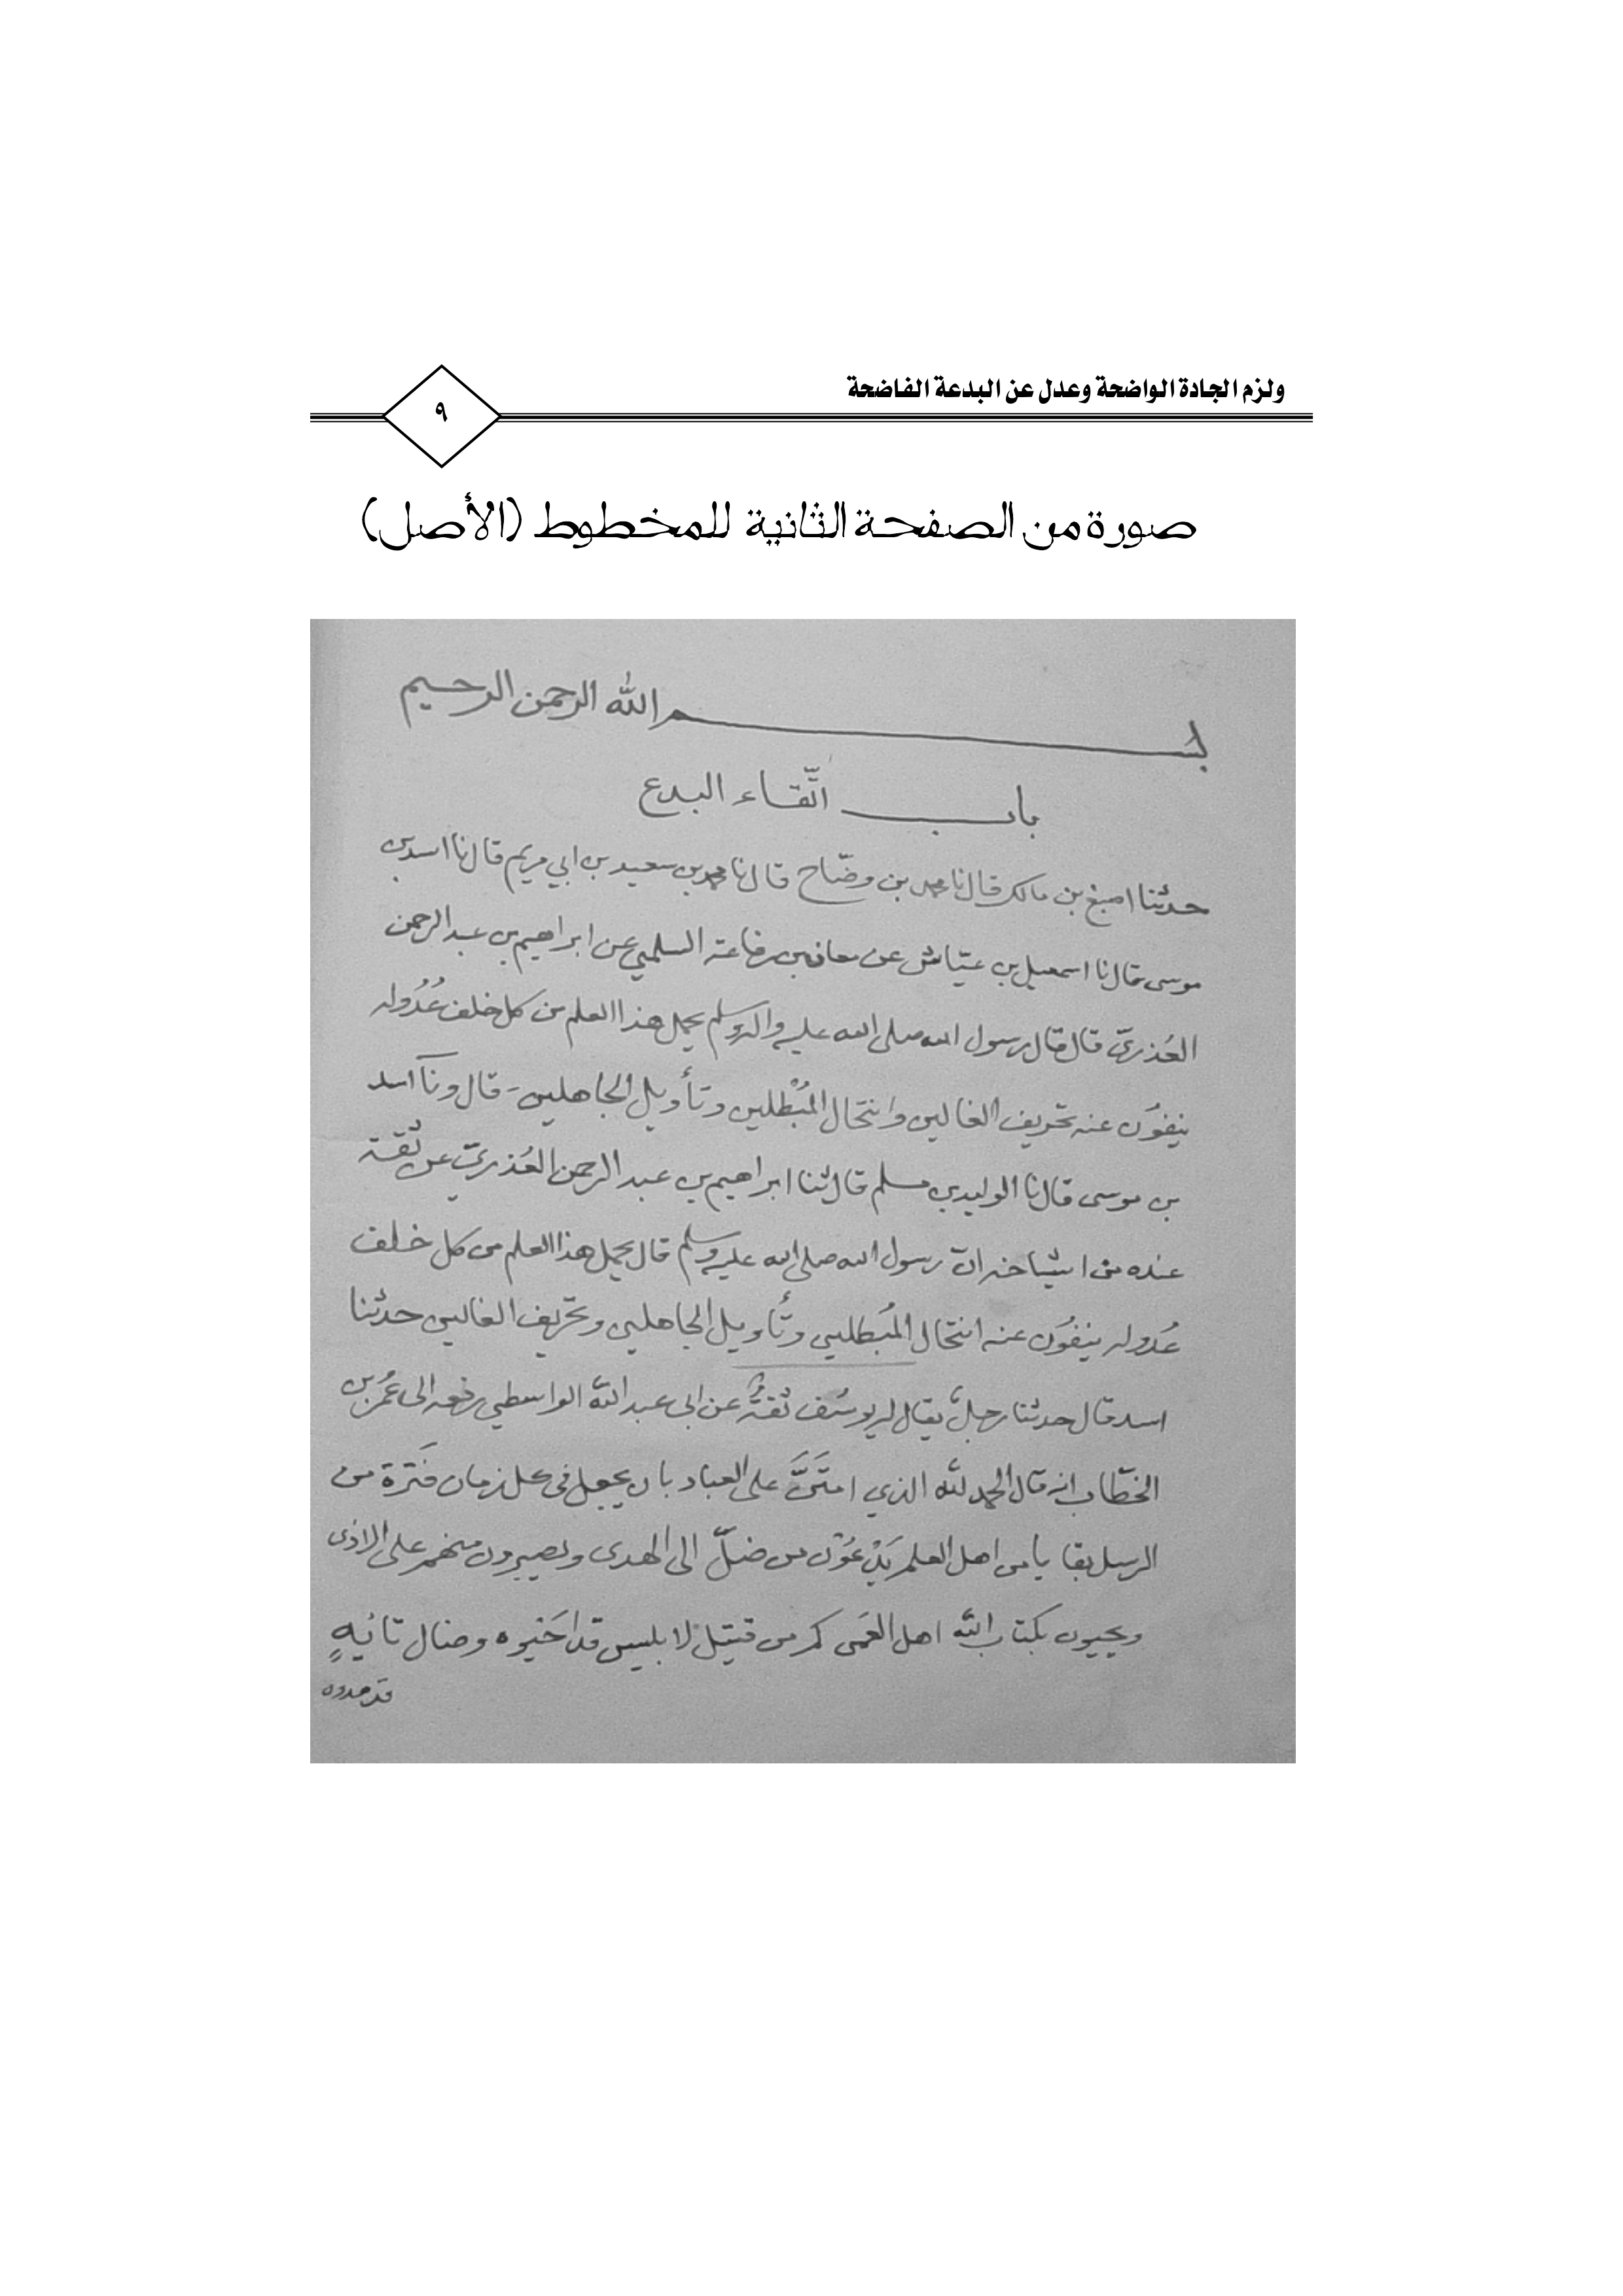 ولزم الجادة الواضحة وعدل عن البدعة الفاضحة
٩
صورة من الصفحة الثانية للمخطوط (الأصل)
بسم الله الرحمن الرحيم
باب اتّقاء البدع
حدثنا اصبغ بن مالك قال نا محمد بن وضّاح قال نا محمد بن سعيد بن ابي مريم قال نا اسد بن
موسى قال نا اسمعيل بن عيّاش عن معاذ بن رفاعة السلمي عن ابراهيم بن عبد الرحمن
العُذريّ قال قال رسول الله صلى الله عليه واله وسلم يحمل هذا العلم من كل خلف عُدُوله
ينفوُن عنه تحريف الغالين وانتحال المُبْطلين وتأويل الجاهلين - قال ونا اسد
بن موسى قال نا الوليد بن مسلم قال ثنا ابراهيم بن عبد الرحمن العُذريّ عن ثقة
عنده من اشياخه انّ رسول الله صلى الله عليه وسلم قال يحمل هذا العلم من كل خلف
عُدوله ينفوُن عنه انتحال المُبطلين وتأويل الجاهلين وتحريف الغالين حدثنا
اسد قال حدثنا رجلٌ يقال له يوسُف ثقةٌ عن ابى عبد الله الواسطي رفعه الى عُمر بن
الخطّاب انه قال الحمد لله الذي امتَنَّ على العباد بان يجعل فى كل زمان فَترة من
الرسل بقايا من اهل العلم يَدْعُوْن من ضلّ الى الهدى ويصبرون منهم على الاذى
ويحيون بكتاب الله اهل العَمى كم من قتيل لابليس قد احَيوه وضال تائهٍ
قد هدوه